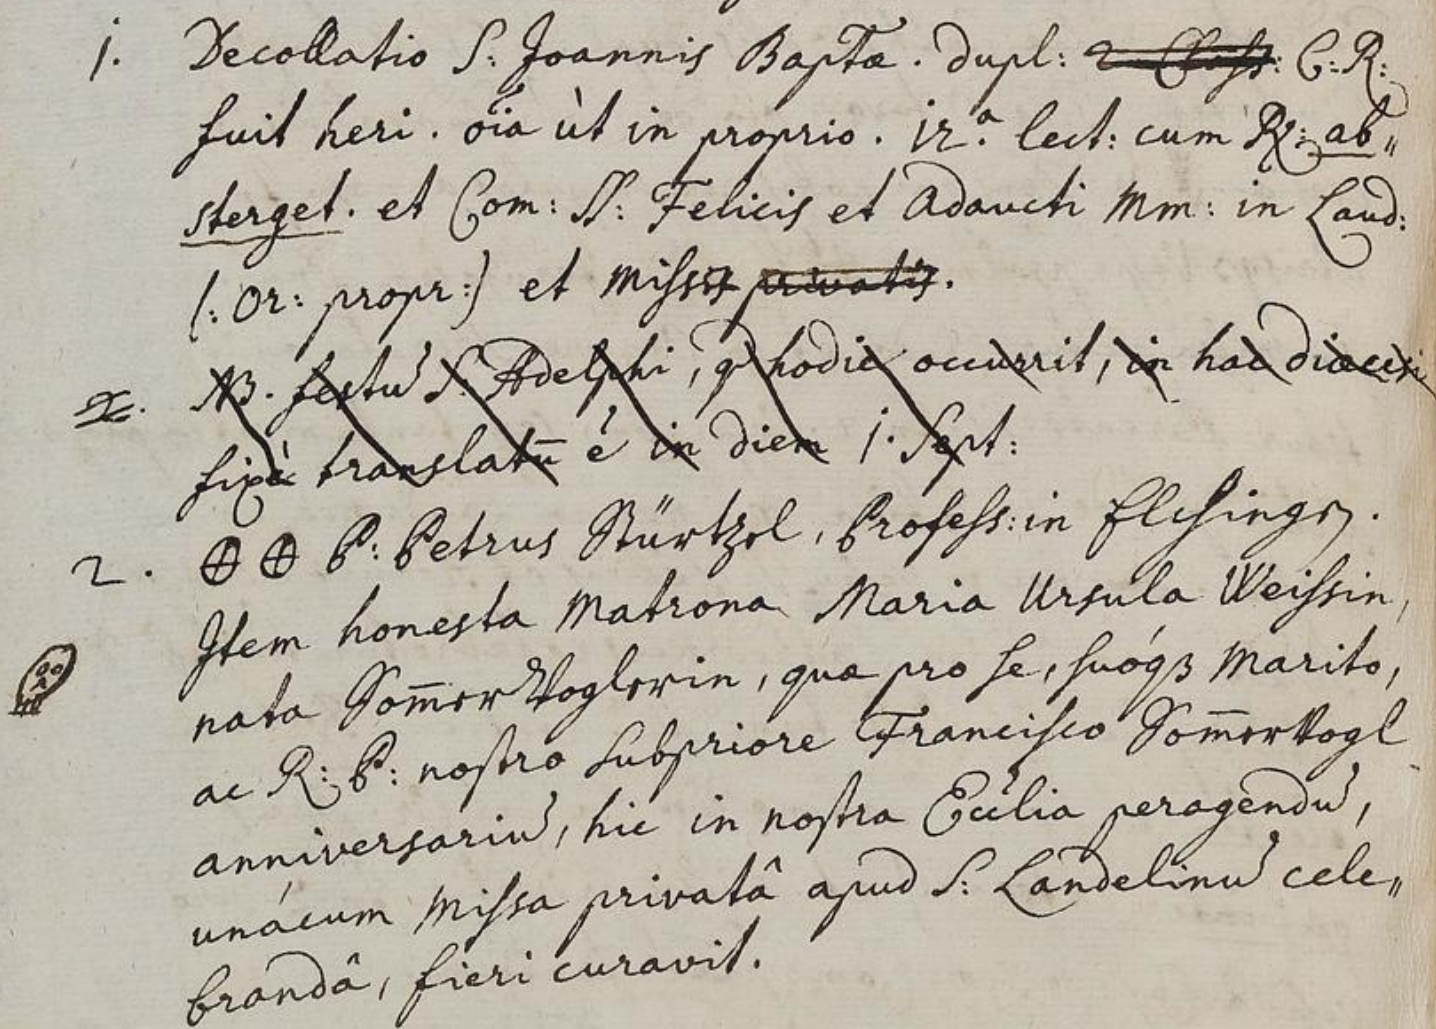 1. Decollatio S: Joannis Baptæ. dupl: 2. Class: C: R:
fuit heri. oïa ùt in proprio. 12.ª lect: cum ℟: ab„
sterget. et Com: SS: Felicis et Adaucti Mm: in Laud:
(: Or: propr:) et missis privatis.
2. NB. festu' S. Adelphi, q' hodie occurrit, in hac diœcesi
fixè translatū é in diem 1. Sept:
2. ⊕ ⊕ P: Petrus Stürtzel, Profess: in
Item honesta Matrona Maria Ursula Weissin,
nata Som̄erVoglerin, quæ pro se, suóqȝ Marito,
ac R: P: nostro Subpriore Francisco Som̄erVogl
anniversariu', hic in nostra Ecclia peragendu',
unácum Missa privatâ apud S: Landelinu' cele„
brandâ, fieri curavit.